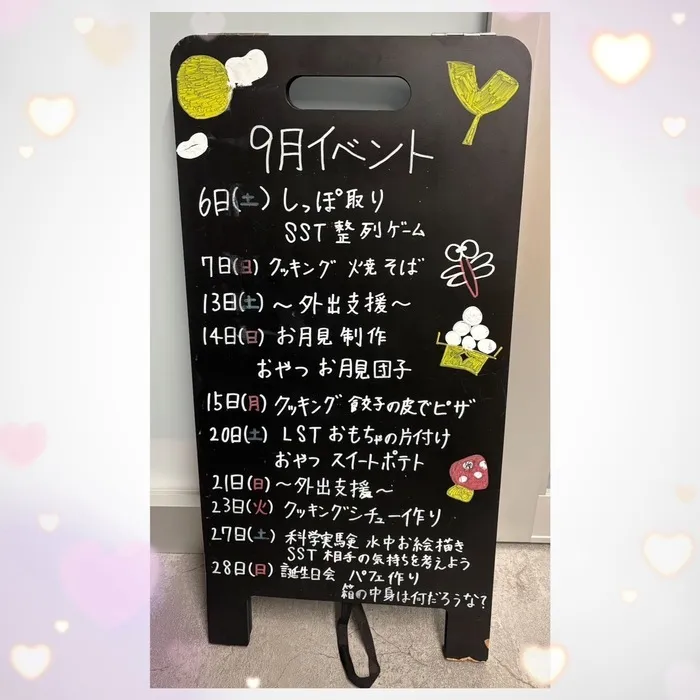 9月イベント
6日(土) しっぽ取り
SST 整列ゲーム
7日(日) クッキング 焼そば
13日(土) ～外出支援～
14日(日) お月見制作
おやつ お月見団子
15日(月) クッキング 餃子の皮でピザ
20日(土) LST おもちゃの片付け
おやつ スイートポテト
21日(日) ～外出支援～
23日(火) クッキングシチュー作り
27日(土) 科学実験 水中お絵描き
SST 相手の気持ちを考えよう
28日(日) 誕生日会 パフェ作り
箱の中身は何だろうな?